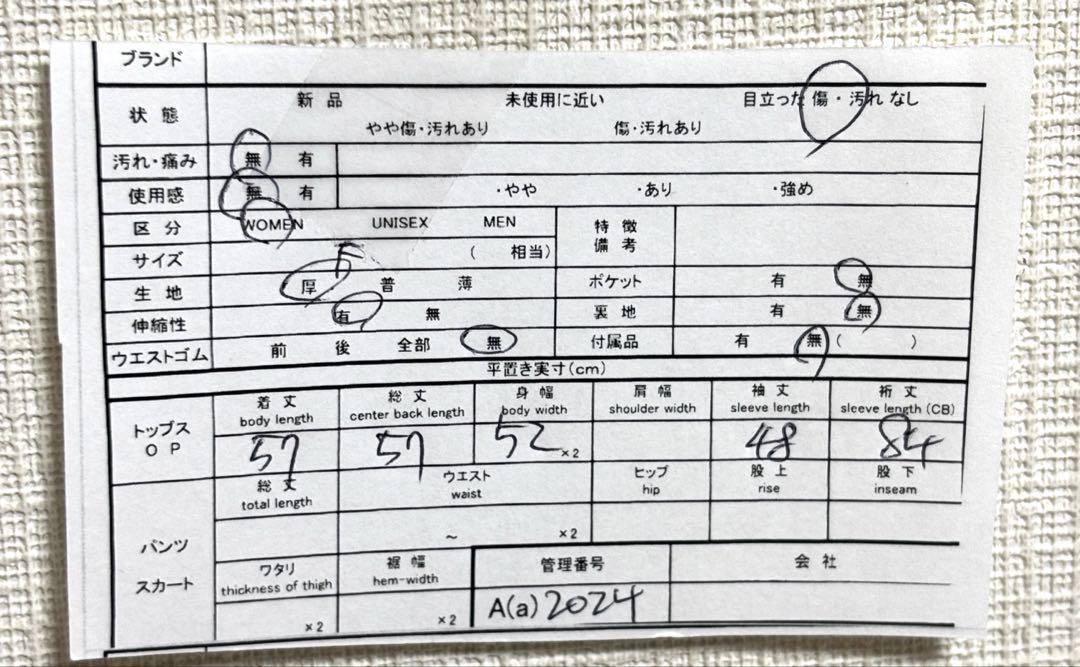 ブランド
状態 新品 未使用に近い 目立った傷・汚れなし
やや傷・汚れあり 傷・汚れあり
汚れ・痛み 無 有
使用感 無 有 ・やや ・あり ・強め
区分 WOMEN UNISEX MEN 特徴
備考
サイズ F ( 相当)
生地 厚 普 薄 ポケット 有 無
伸縮性 有 無 裏地 有 無
ウエストゴム 前 後 全部 無 付属品 有 無 ( )
平置き実寸(cm)
着丈 総丈 身幅 肩幅 袖丈 裄丈
body length center back length body width shoulder width sleeve length sleeve length (CB)
トップス
OP
57 57 52 ×2 48 84
総丈 ウエスト ヒップ 股上 股下
total length waist hip rise inseam
~ ×2
パンツ
スカート
ワタリ 裾幅 管理番号 会社
thickness of thigh hem-width
×2 ×2 A(a) 2024